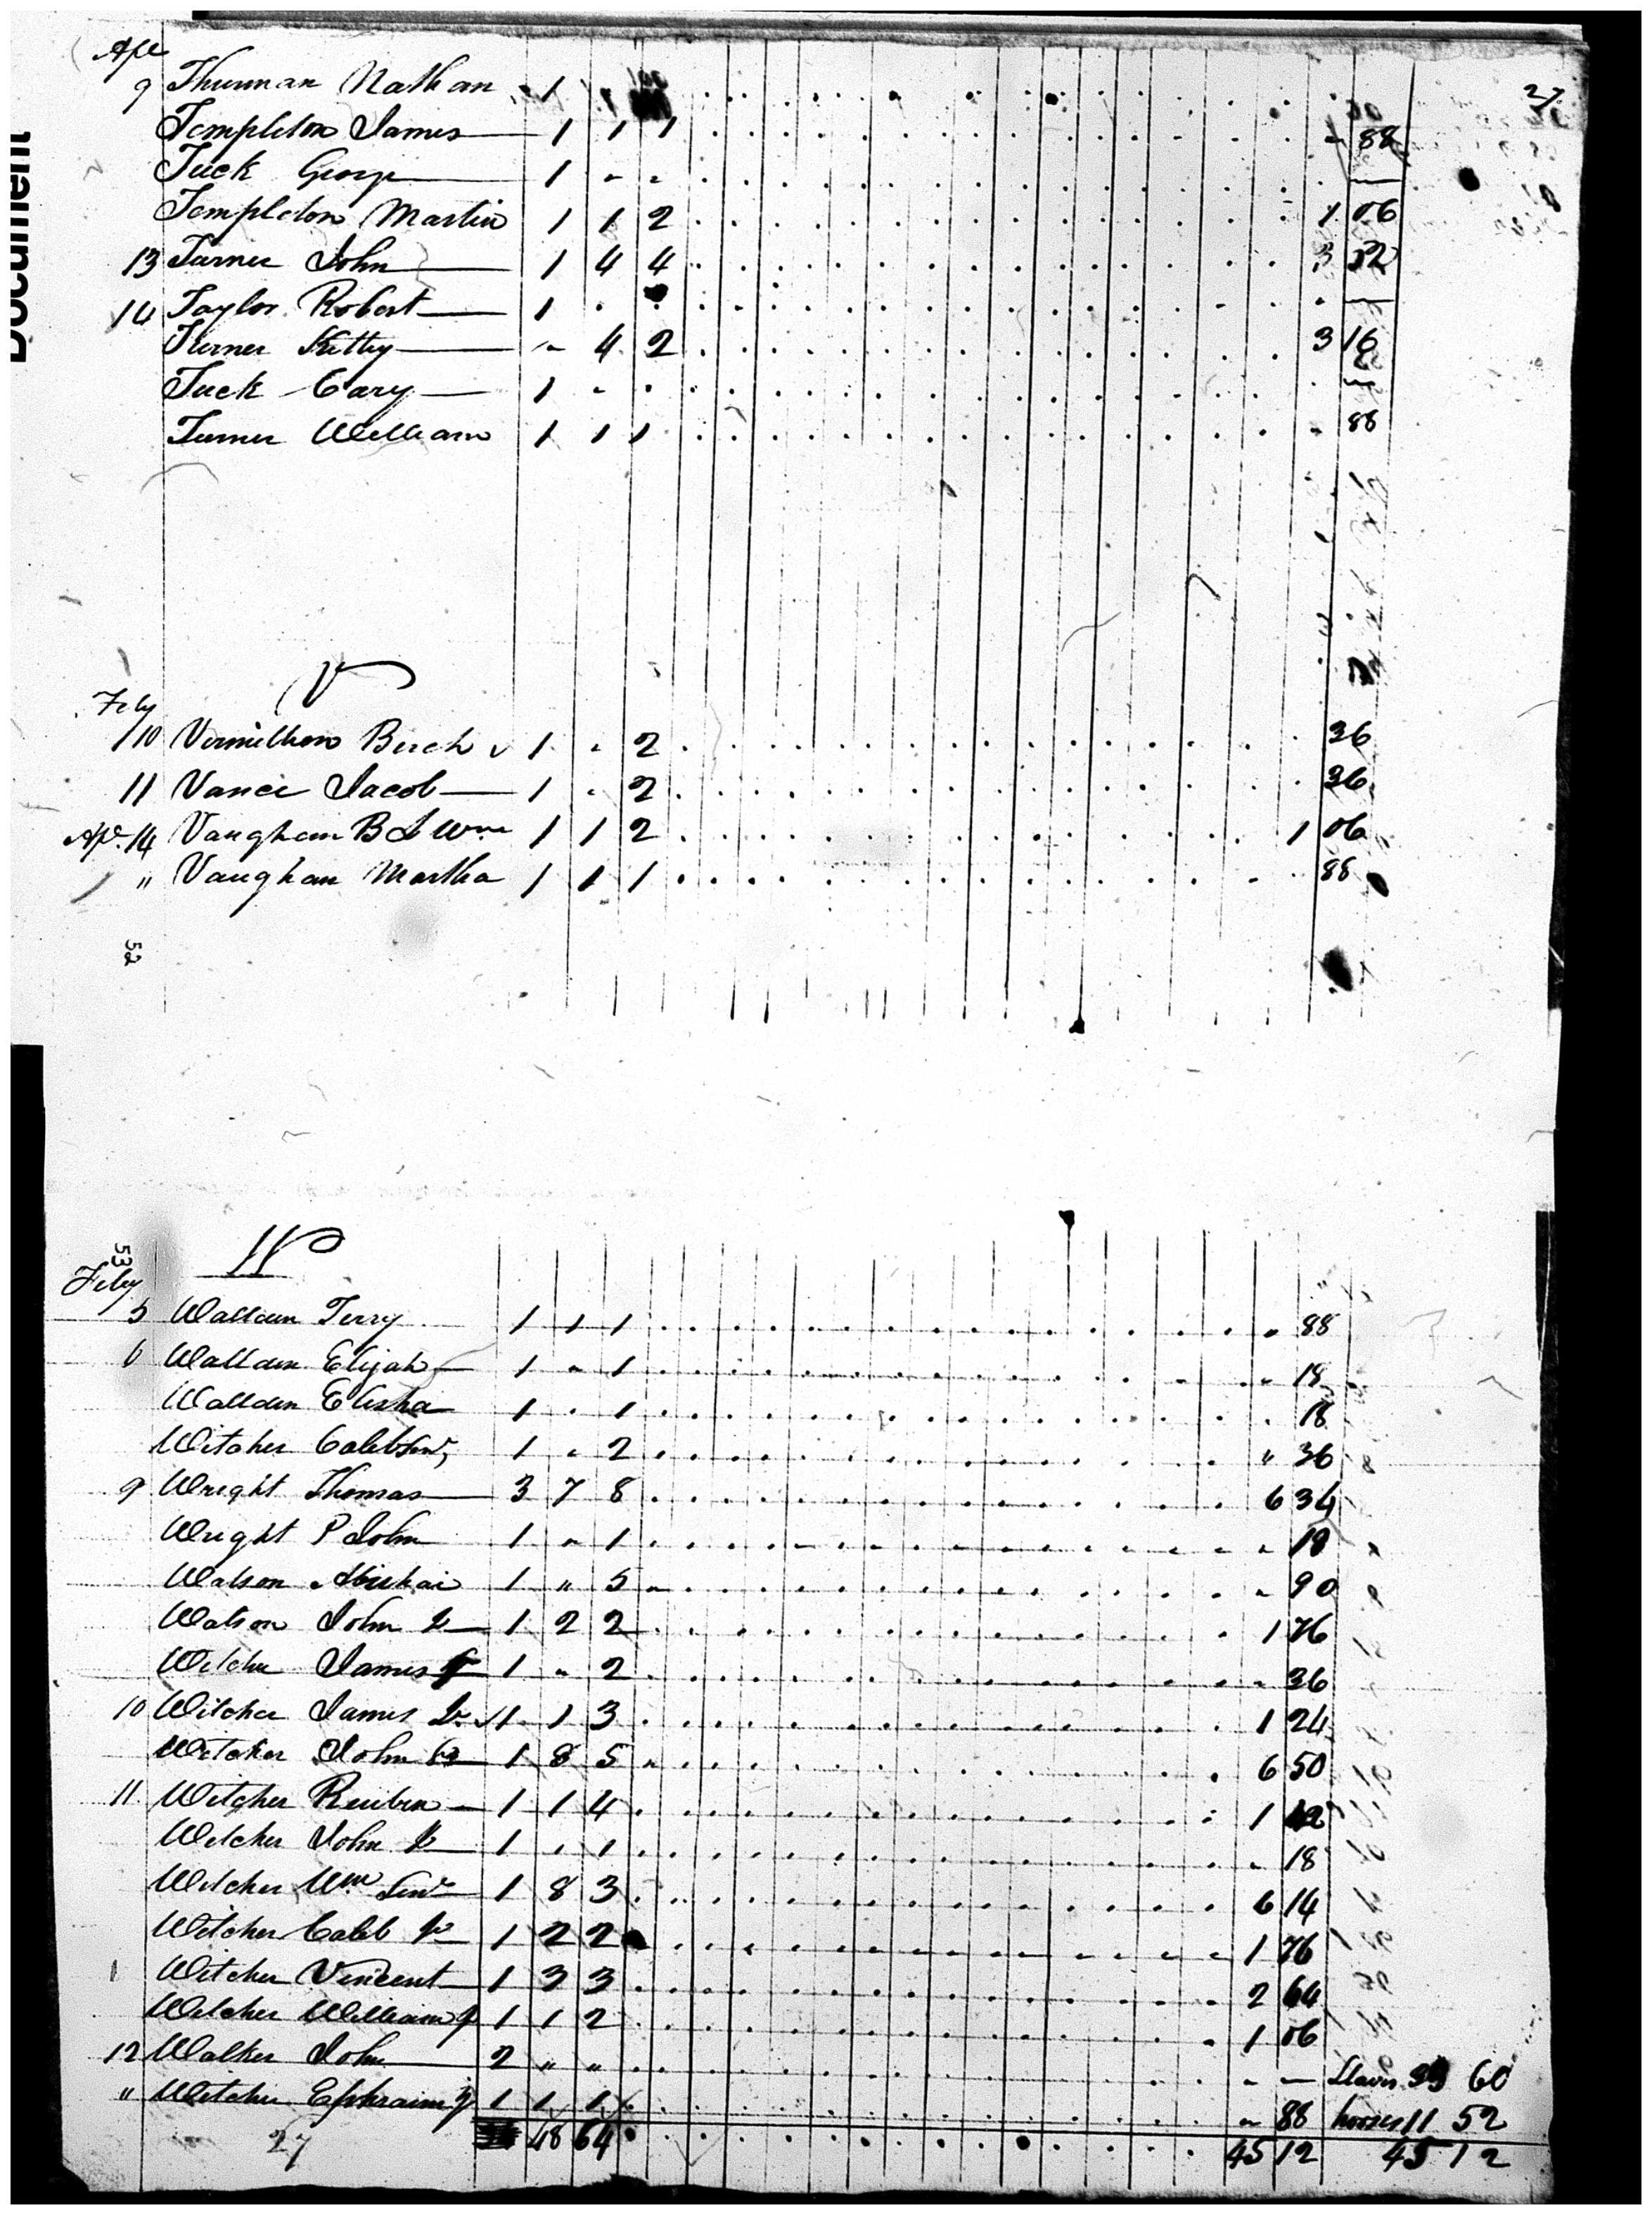 Document
27
Ape
9 Thurman Nathan 1
Templeton James 1 1 1 88
Tuck George 1
Templeton Martin 1 1 2 1 06
13 Turner John 1 4 4 3 52
14 Taylor Robert 1
Turner Kitty 4 2 3 16
Tuck Cary 1
Turner William 1 1 1 88
V
Feby
10 Vermillion Birch 1 2 36
11 Vance Jacob 1 2 36
Ape. 14 Vaughan B & Wm 1 1 2 1 06
" Vaughan Martha 1 1 1 88
52
53
W
Feby
5 Walldin Terry 1 1 1 88
6 Walldin Elijah 1 1 18
Walldin Elisha 1 1 18
Witcher Caleb Senr 1 2 " 36
9 Wright Thomas 3 7 8 6 34
Wright P John 1 1 18
Watson Abishai 1 " 5 90
Watson John Jr 1 2 2 1 76
Witcher James 1 2 36
10 Witcher James Jr. 1 1 3 1 24
Witcher John 1 8 5 6 50
11 Witcher Reuben 1 1 4 1 42
Witcher John Jr 1 1 18
Witcher Wm Senr 1 8 3 6 14
Witcher Caleb Jr 1 2 2 1 76
Witcher Vincent 1 3 3 2 64
Witcher William Jr 1 1 2 1 06
12 Walker John 2 " " Slaves 33 60
" Witcher Ephraim 1 1 1 88 horses 11 52
27 48 64 45 12 45 12